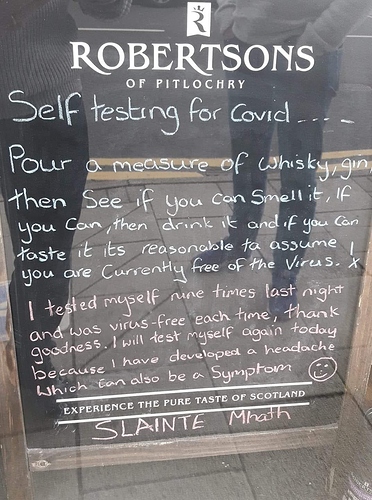 ROBERTSONS
OF PITLOCHRY
Self testing for Covid.....
Pour a measure of Whisky, gin,
then See if you can Smell it, If
you Can, then drink it and if you Can
taste it its reasonable to assume !
you are Currently free of the Virus. x
I tested myself nine times last night
and was virus-free each time, thank
goodness. I will test myself again today
because I have developed a headache
Which can also be a Symptom
EXPERIENCE THE PURE TASTE OF SCOTLAND
SLAINTE Mhath